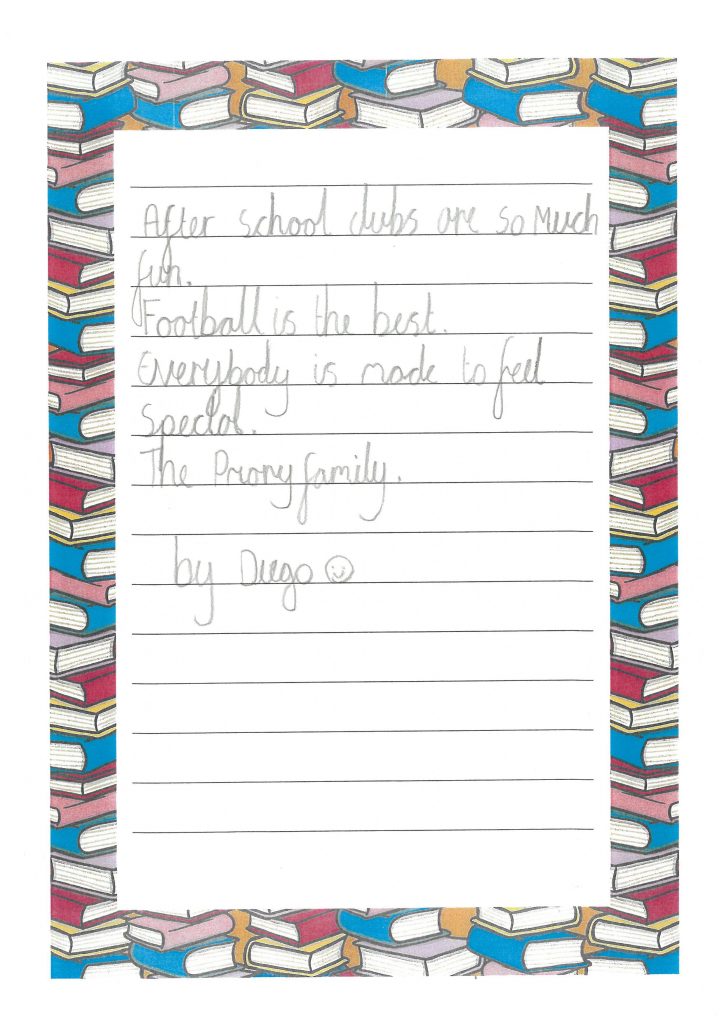 After school clubs are so Much
fun.
Football is the best.
Everybody is made to feel
Special.
The Priory family.
by Diego